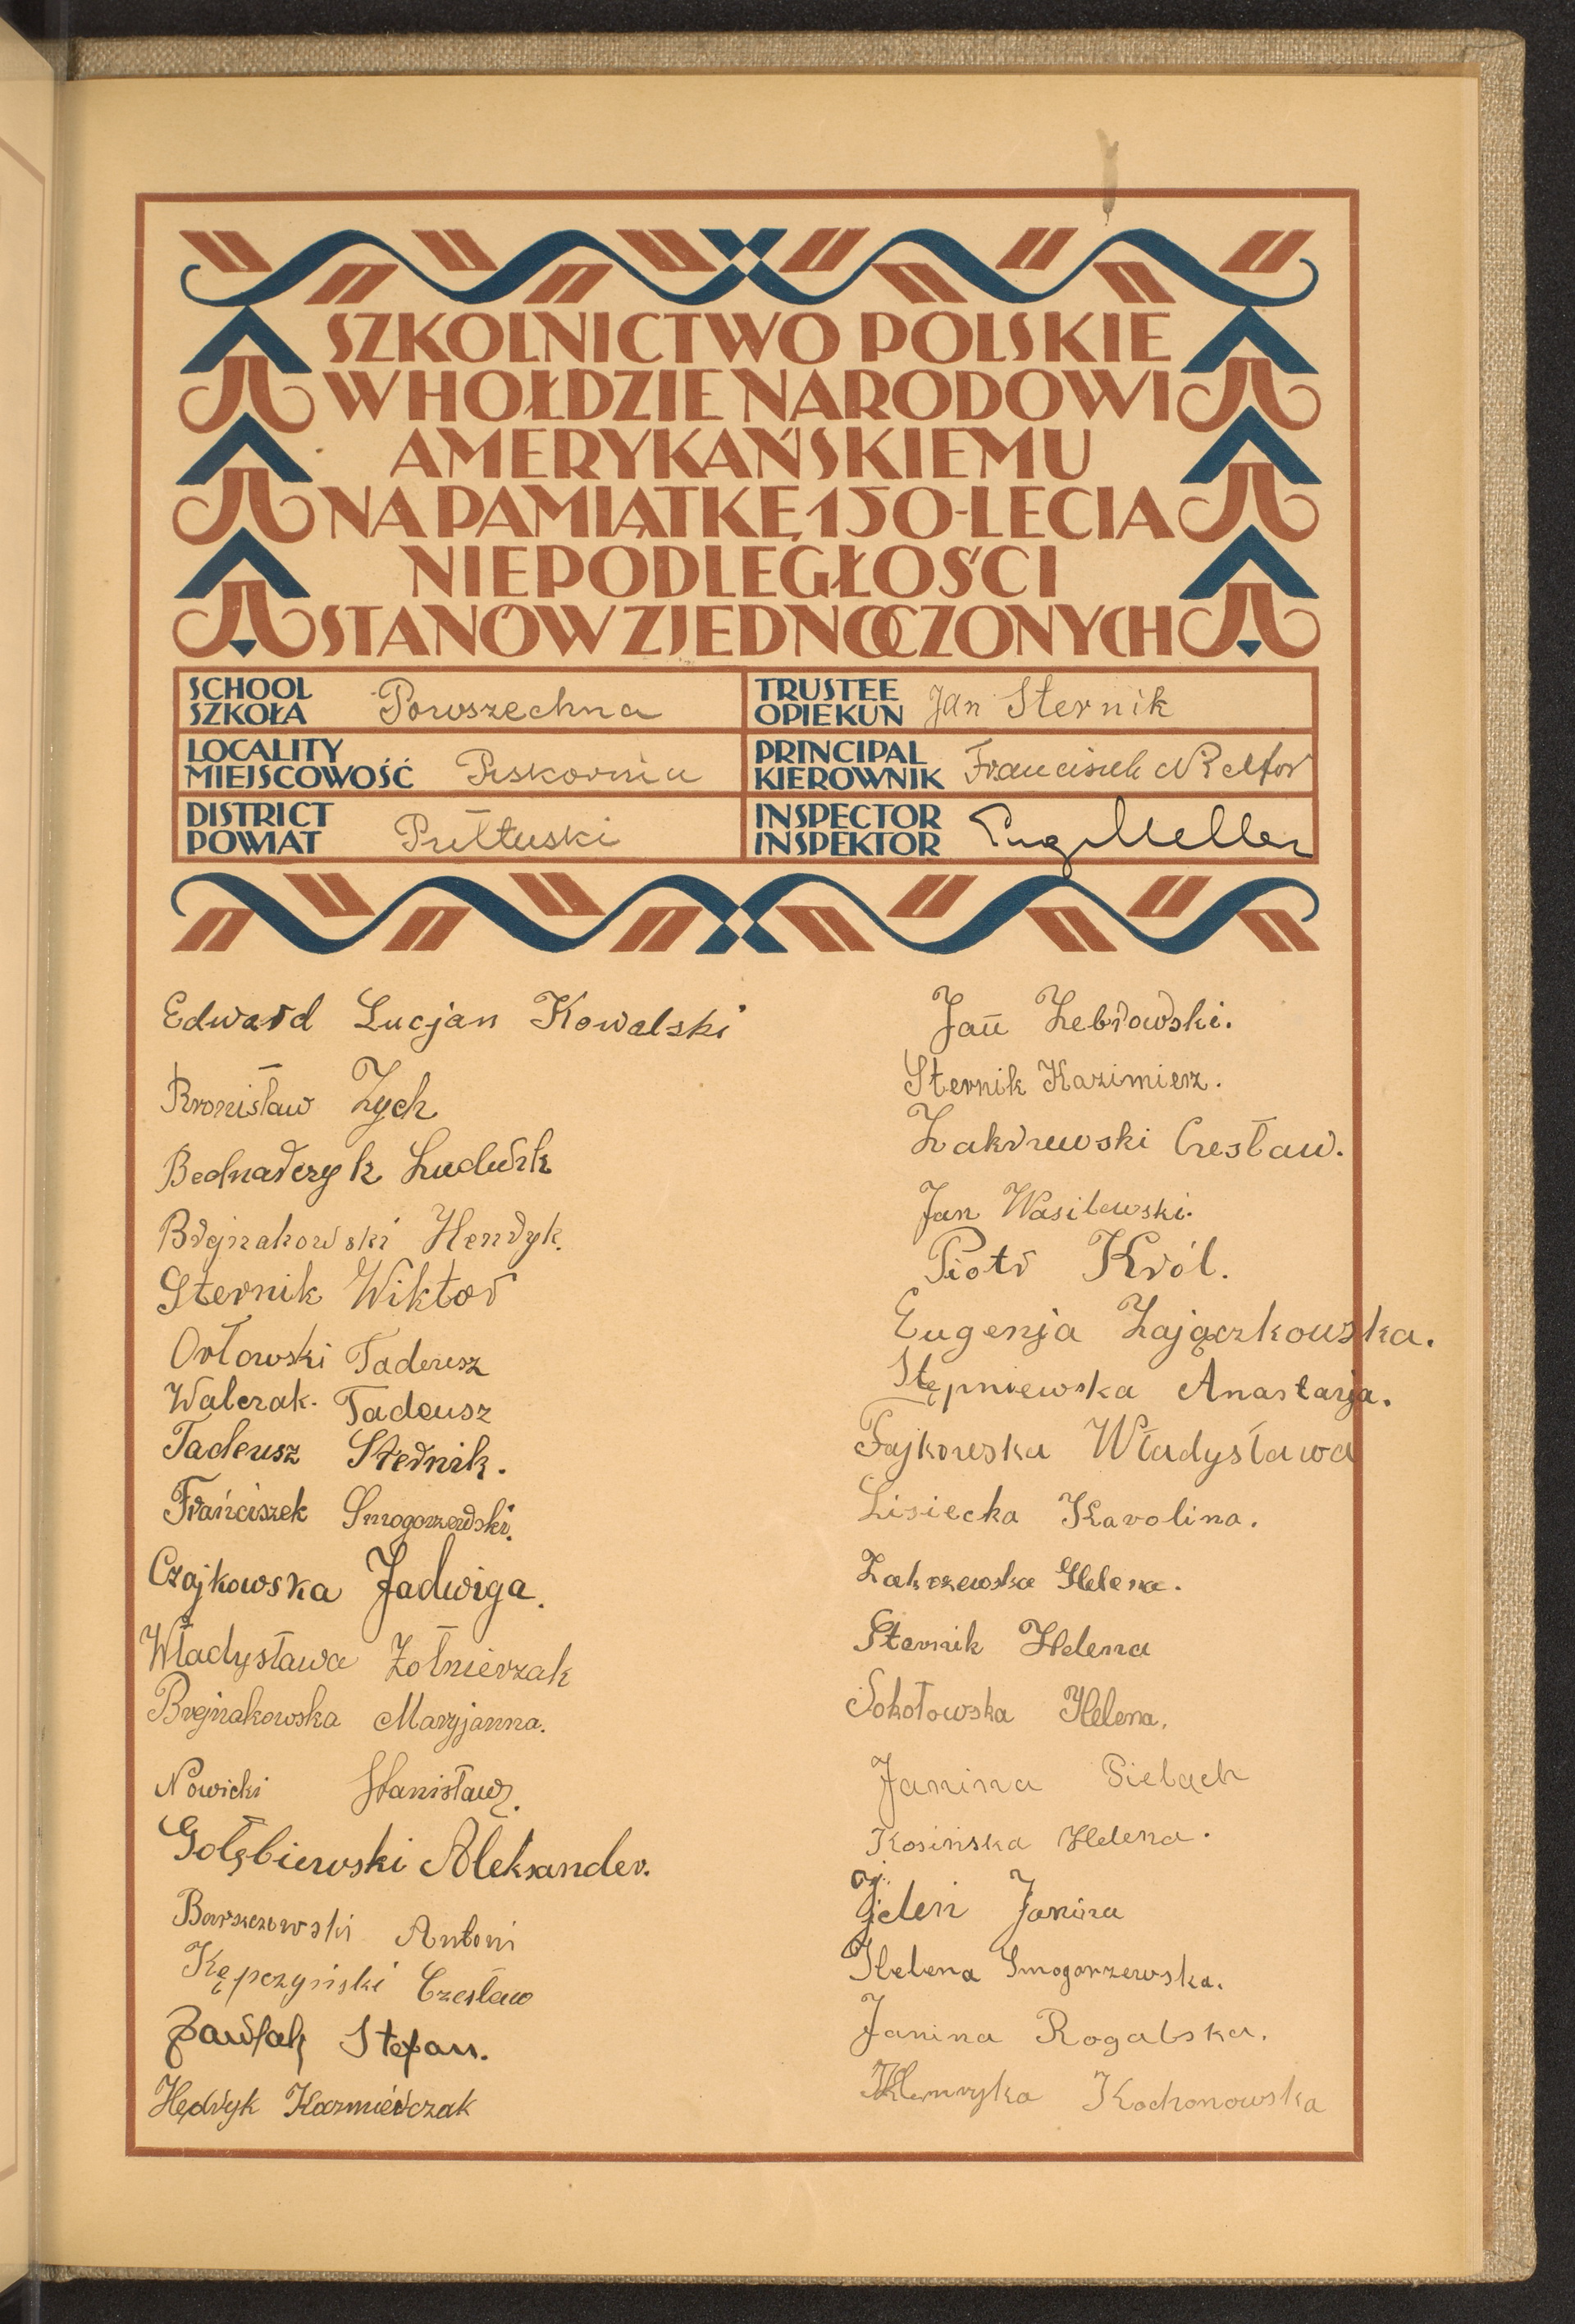 SZKOLNICTWO POLSKIE
W HOŁDZIE NARODOWI
AMERYKAŃSKIEMU
NA PAMIĄTKĘ 150-LECIA
NIEPODLEGŁOŚCI
STANÓW ZJEDNOCZONYCH
SCHOOL
SZKOŁA Powszechna
TRUSTEE
OPIEKUN Jan Sternik
LOCALITY
MIEJSCOWOŚĆ Piskornia
PRINCIPAL
KIEROWNIK Franciszek
DISTRICT
POWIAT Pułtuski
INSPECTOR
INSPEKTOR Eug Meller
Edward Lucjan Kowalski
Bronisław Zych
Bednarczyk Ludwik
Brejnakowski Henryk.
Sternik Wiktor
Orłowski Tadeusz
Walczak. Tadeusz
Tadeusz Sternik.
Franciszek Smogorzewski.
Czajkowska Jadwiga.
Władysława Żołnierzak
Brejnakowska Maryjanna.
Nowicki Stanisław.
Gołębiewski Aleksander.
Barszczowski Antoni
Kępczyński Czesław
Pawlak Stefan.
Hędryk Kazmierczak
Jan Żebrowski.
Sternik Kazimierz.
Zakrzewski Czesław.
Jan Wasilewski.
Piotr Król.
Eugenja Zajączkowska.
Stępniewska Anastazja.
Fajkowska Władysława
Lisiecka Karolina.
Zakrzewska Helena.
Sternik Helena
Sokołowska Helena.
Janina Pielach
Kosińska Helena.
Jeleń Janina
Helena Smogorzewska.
Janina Rogalska.
Henryka Kochonowska